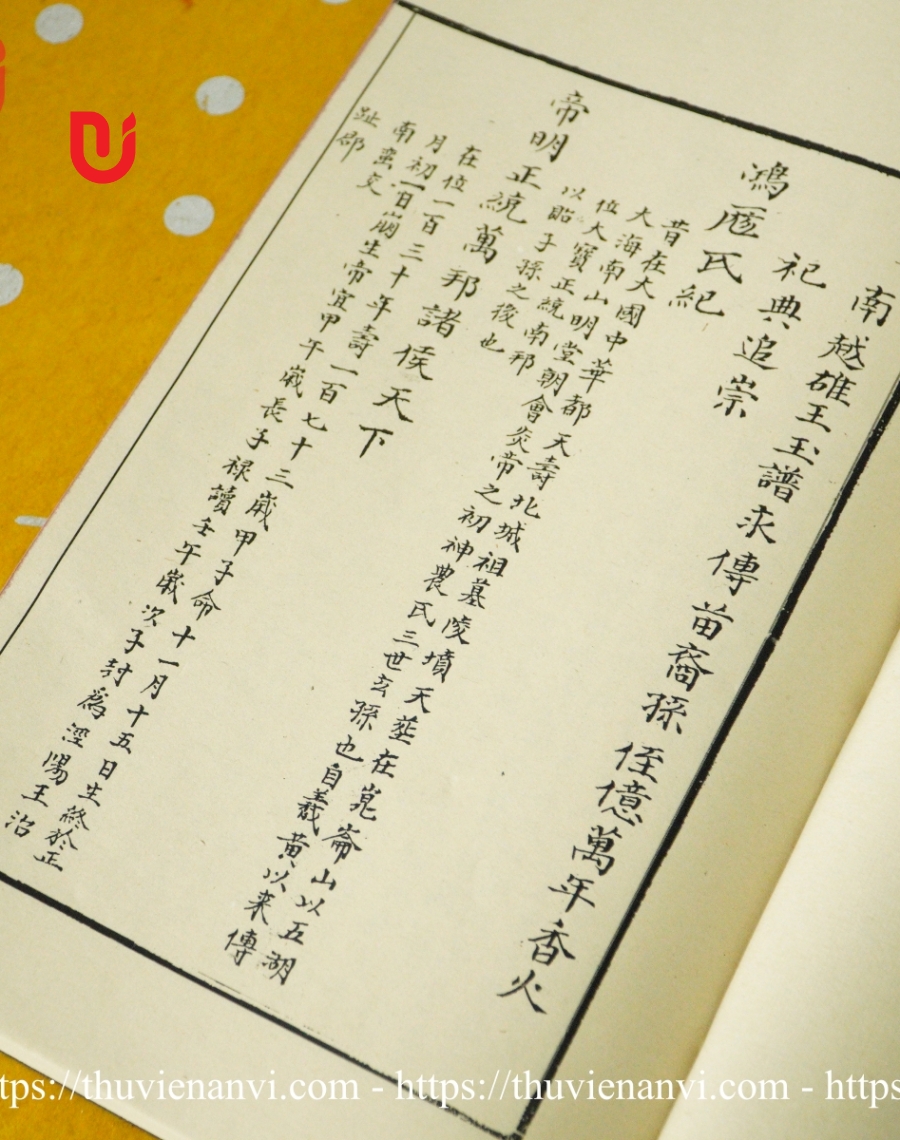 南越雄王玉譜永傳苗裔孫侄億萬年香火
祀典追崇
鴻厖氏紀
昔在大國中華都天壽北城祖墓陵墳天莚在崑崙山以五湖
大海南山明堂朝會炎帝之初神農氏三世玄孫也自羲黃以来傳
位大寶正統南邦
以昭子孫之後也
帝明正統萬邦諸侯天下
在位一百三十年壽一百七十三歲甲子命十一月十五日生終於正
月初一日崩生帝宜甲午歲長子禄讀壬午歲次子封爲涇陽王治
南蛮交
趾郡
https://thuvienanvi.com - https://thuvienanvi.com - https